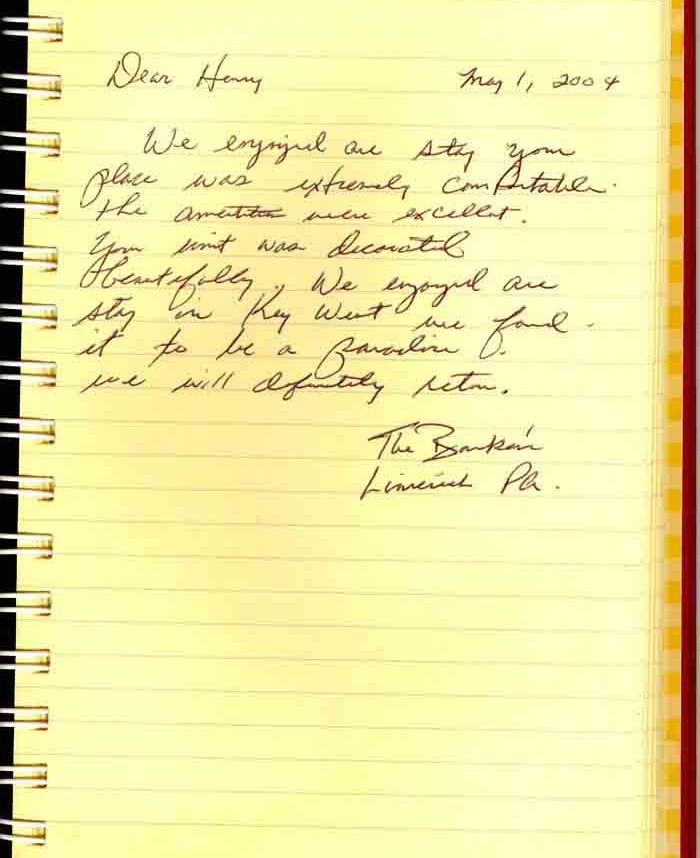 Dear Henry May 1, 2004
We enjoyed are stay your
place was extremely comfortable.
the amenities were excellent.
Your unit was decorated
beautifully. We enjoyed are
stay in Key West we found
it to be a paradise.
we will definitely return.
The
Limerick Pa.